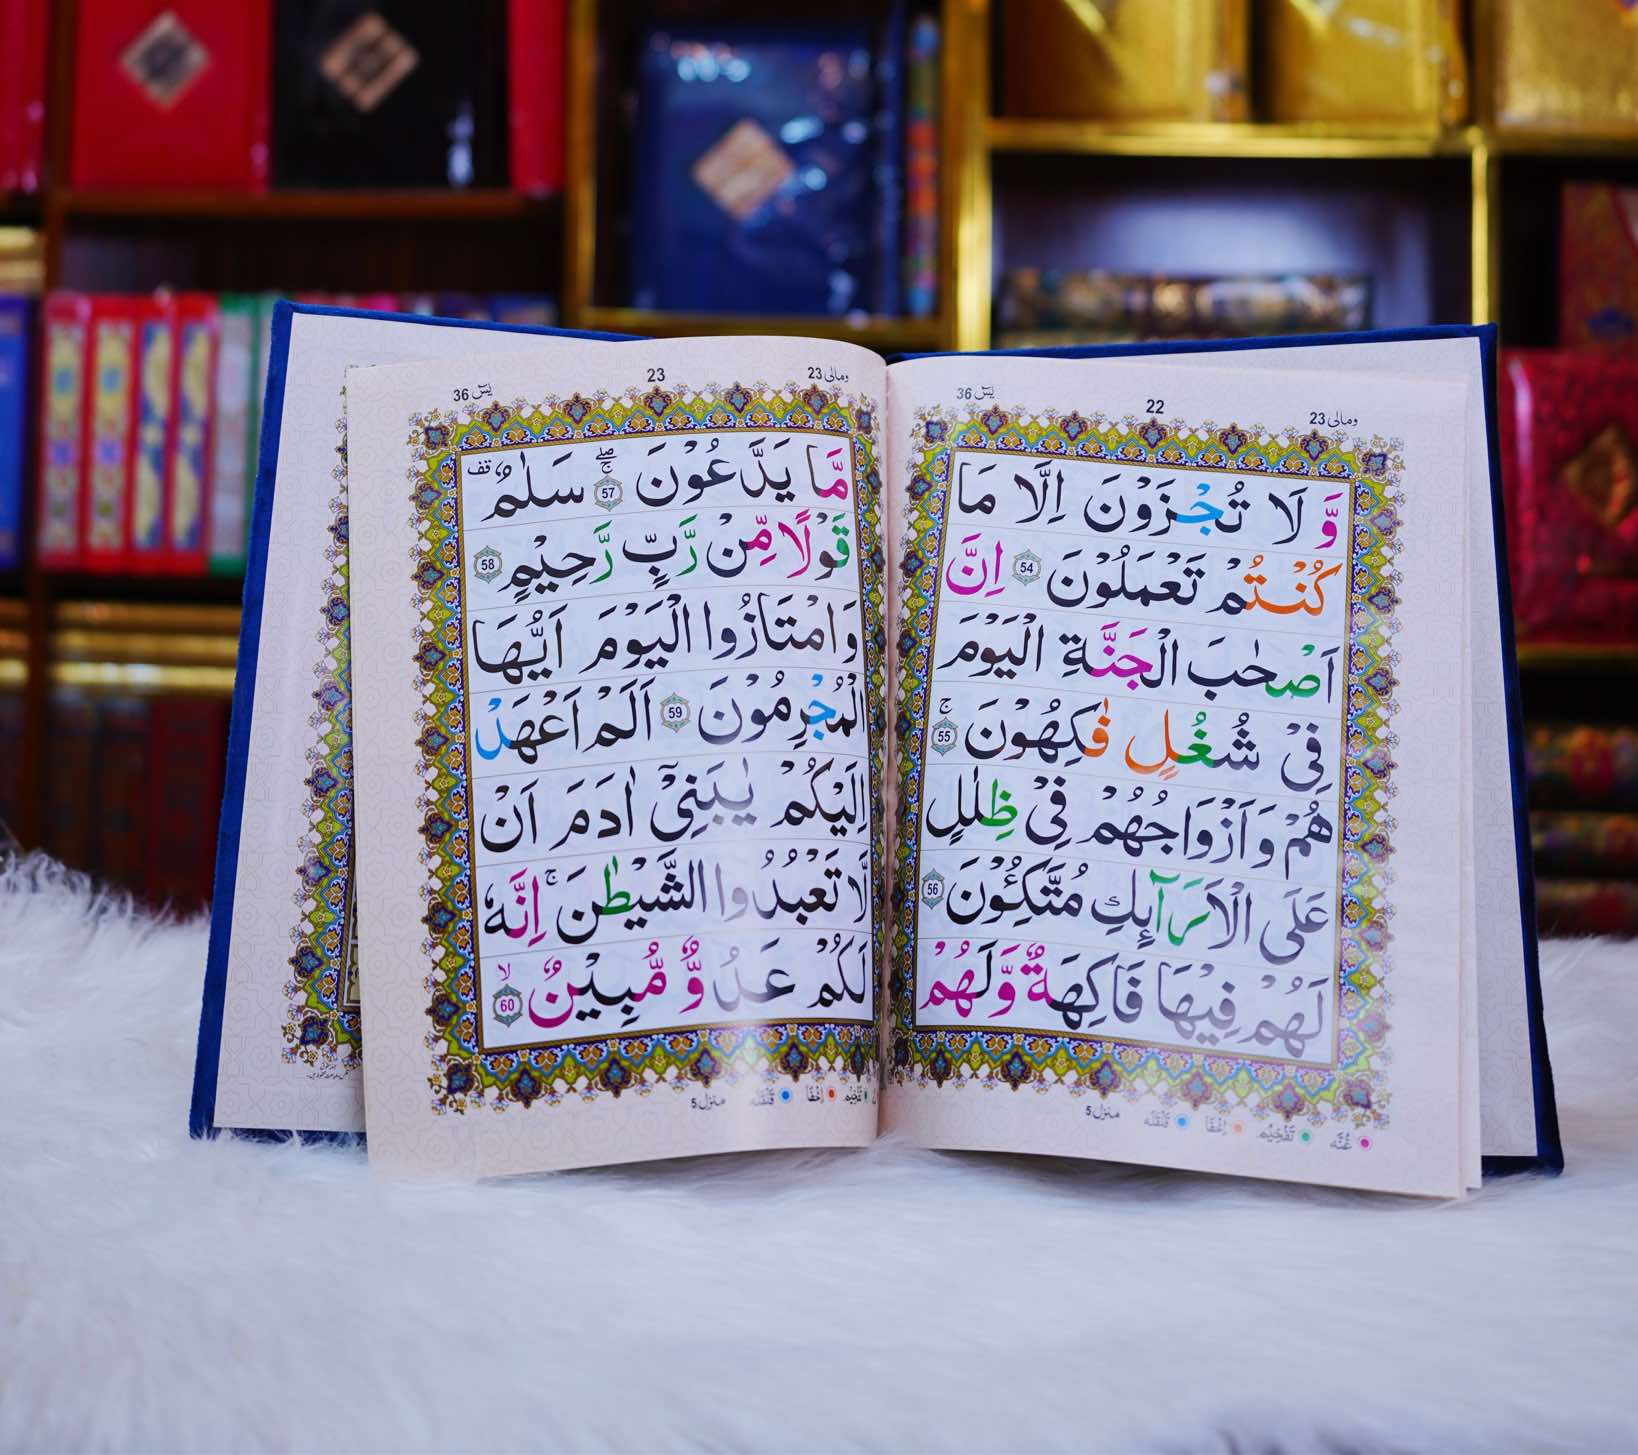 ومالی 23
22
يٰسٓ 36
وَّ لَا تُجْزَوْنَ اِلَّا مَا
كُنْتُمْ تَعْمَلُوْنَ 54 اِنَّ
اَصْحٰبَ الْجَنَّةِ الْيَوْمَ
فِيْ شُغُلٍ فٰكِهُوْنَ 55 ج
هُمْ وَ اَزْوَاجُهُمْ فِيْ ظِلٰلٍ
عَلَى الْاَرَآئِكِ مُتَّكِـُٔوْنَ 56
لَهُمْ فِيْهَا فَاكِهَةٌ وَّ لَهُمْ
غُنَّه تَفْخِيْم اِخْفَا قَلْقَلَه
منزل 5
ومالی 23
23
يٰسٓ 36
مَّا يَدَّعُوْنَ 57 ج صلے سَلٰمٌ قف
قَوْلًا مِّنْ رَّبٍّ رَّحِيْمٍ 58
وَ امْتَازُوا الْيَوْمَ اَيُّهَا
الْمُجْرِمُوْنَ 59 اَلَمْ اَعْهَدْ
اِلَيْكُمْ يٰبَنِيْٓ اٰدَمَ اَنْ
لَّا تَعْبُدُوا الشَّيْطٰنَ ج اِنَّهٗ
لَكُمْ عَدُوٌّ مُّبِيْنٌ 60 لا
تَفْخِيْم اِخْفَا قَلْقَلَه
منزل 5